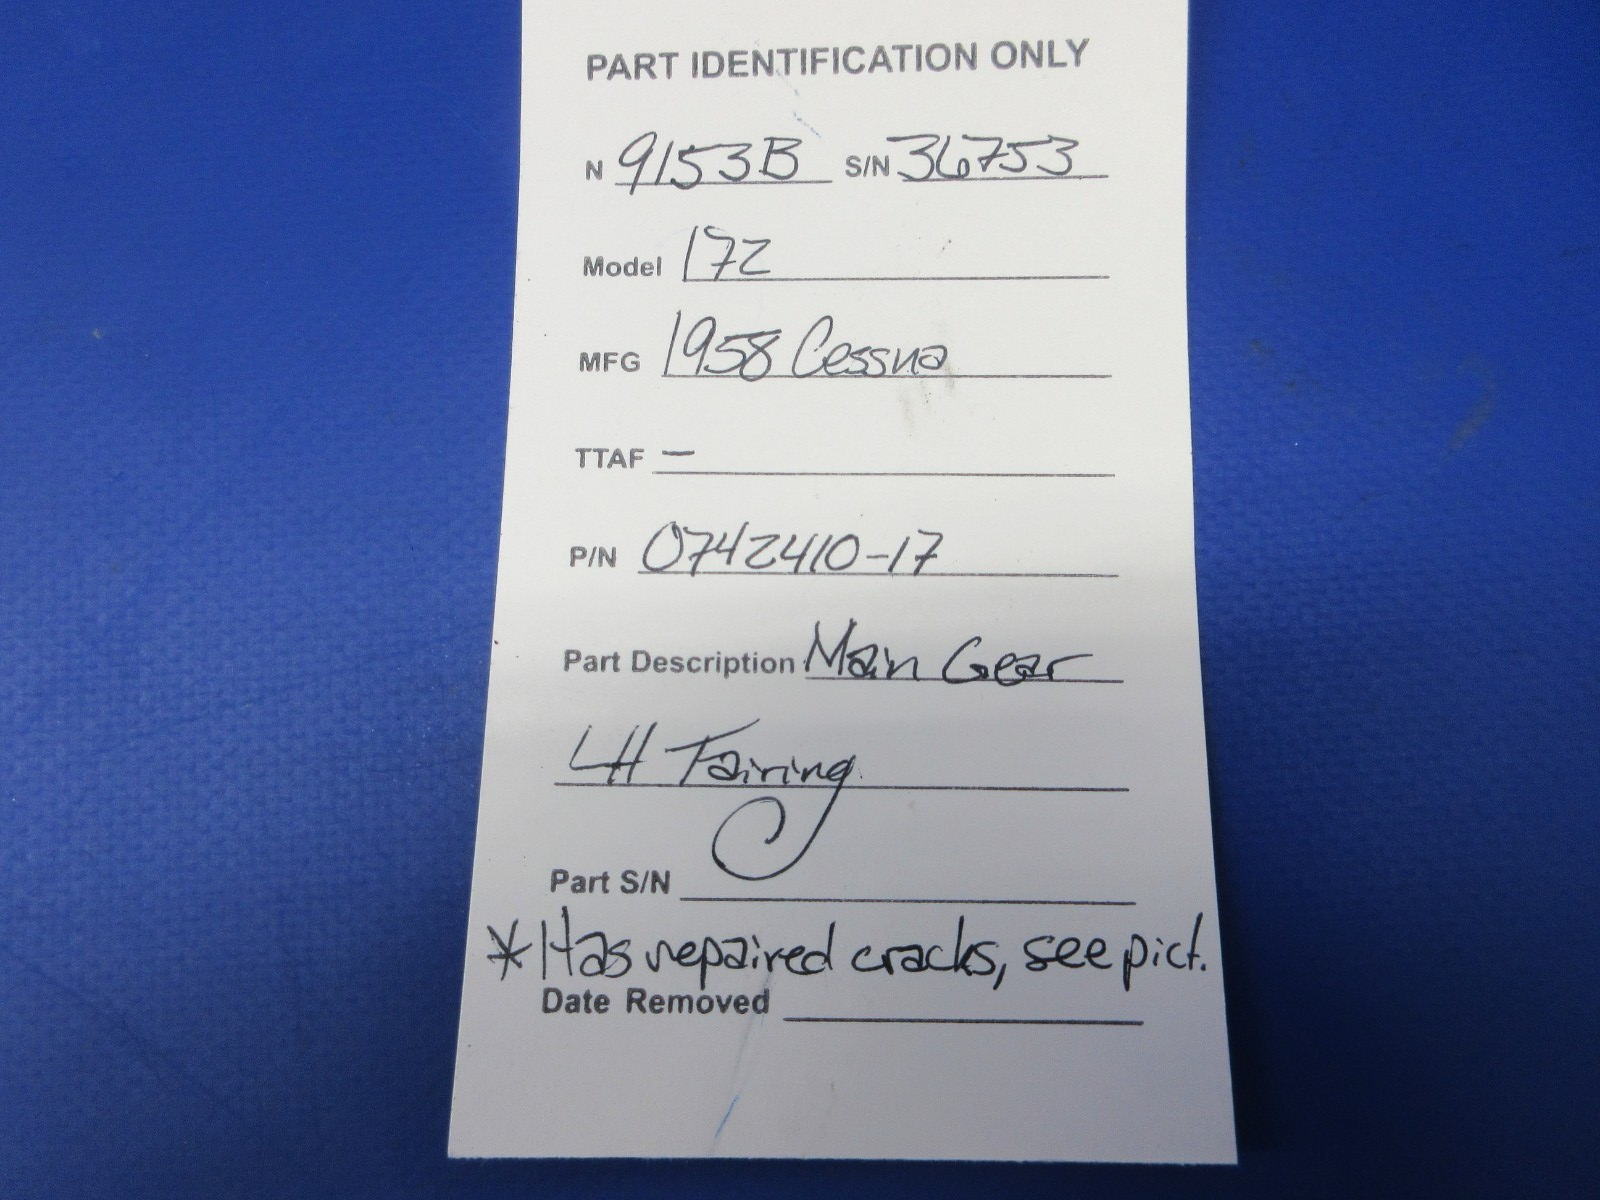 PART IDENTIFICATION ONLY
N 9153B S/N 36753
Model 172
MFG 1958 Cessna
TTAF –
P/N 0742410-17
Part Description Main Gear
LH Fairing
Part S/N
* Has repaired cracks, see pict.
Date Removed